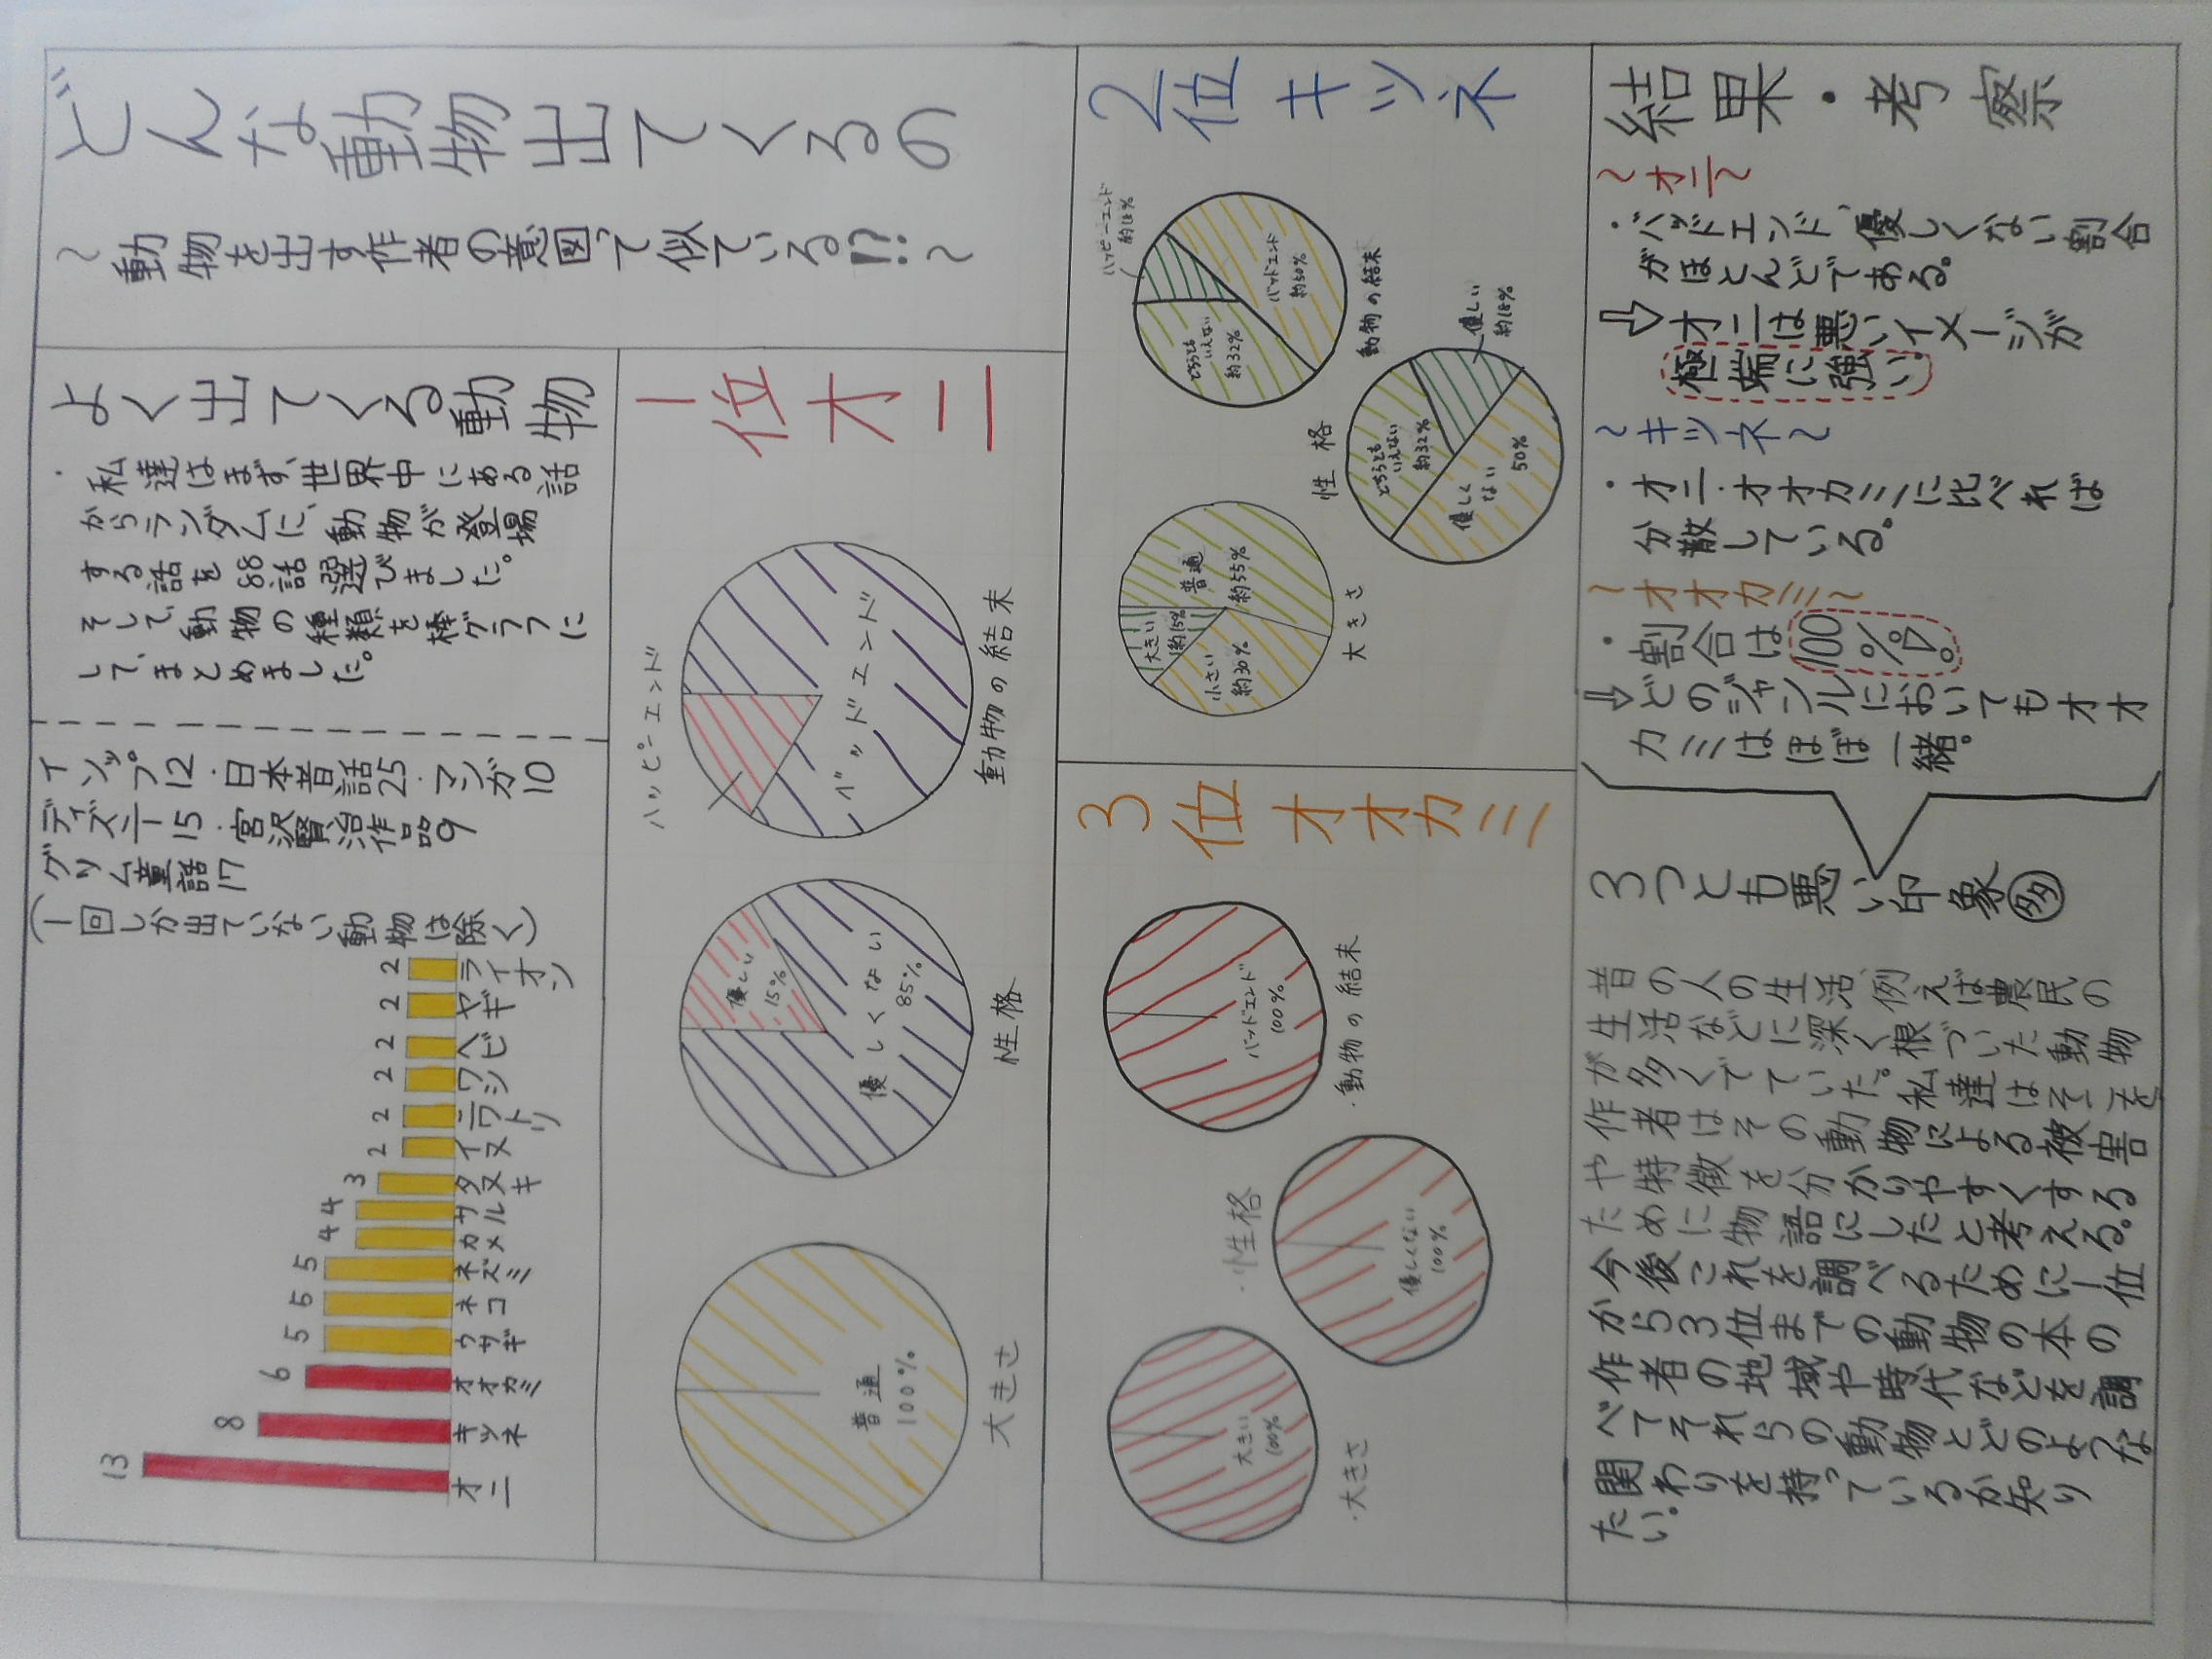 どんな動物出てくるの
～動物を出す作者の意図って似ている!?～
よく出てくる動物
・私達はまず、世界中にある話
からランダムに、動物が登場
する話を88話選びました。
そして、動物の種類を棒グラフに
して、まとめました。
イソップ12・日本昔話25・マンガ10
ディズニー15・宮沢賢治作品9
グリム童話17
(1回しか出ていない動物は除く)
13 8 6 5 5 5 4 4 3 2 2 2 2 2 2
オニ キツネ オオカミ ウサギ ネコ ネズミ カメ サル タヌキ イヌ ニワトリ ワシ ヘビ ヤギ ライオン
1位オニ
ハッピーエンド
バッドエンド
動物の結末
優しい
15%
優しくない
85%
性格
普通
100%
大きさ
2位キツネ
ハッピーエンド
約18%
バッドエンド
約50%
どちらとも
いえない
約32%
動物の結末
優しい
約18%
どちらとも
いえない
約32%
優しく
ない
50%
性格
普通
約55%
大きい
約15%
小さい
約30%
大きさ
3位オオカミ
バッドエンド
100%
・動物の結末
優しくない
100%
・性格
大きい
100%
・大きさ
結果・考察
～オニ～
・バッドエンド、優しくない割合
がほとんどである。
⇨オニは悪いイメージが
極端に強い。
～キツネ～
・オニ・オオカミに比べれば
分散している。
～オオカミ～
・割合は100%だ。
⇨どのジャンルにおいてもオオ
カミはほぼ一緒。
3つとも悪い印象多
昔の人の生活、例えば農民の
生活などに深く根づいた動物
が多くでていた。私達はそこを
作者はその動物による被害
や特徴を分かりやすくする
ために物語にしたと考える。
今後これを調べるために1位
から3位までの動物の本の
作者の地域や時代などを調
べてそれらの動物とどのような
関わりを持っているか知り
たい。